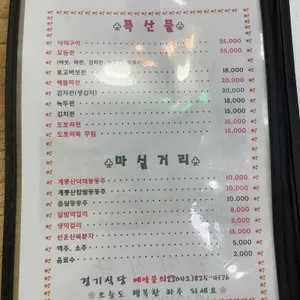 ♧특산물♧
더덕구이 35,000
모듬전 35,000
(버섯, 파전, 김치전,
표고버섯전 18,000
해물파전 20,000
감자전(생감자) 20,000
녹두전 18,000
김치전 15,000
도토리전 15,000
도토리묵 무침 15,000
♧마실거리♧
계룡산더덕동동주 10,000
계룡산찹쌀동동주 10,000
좁쌀동동주 8,000
알밤막걸리 8,000
생막걸리 5,000
선운산복분자 15,000
맥주, 소주 5,000
음료수 2,000
경기식당 예약문의 (042)825-4176
오늘도 행복한 하루 되세요